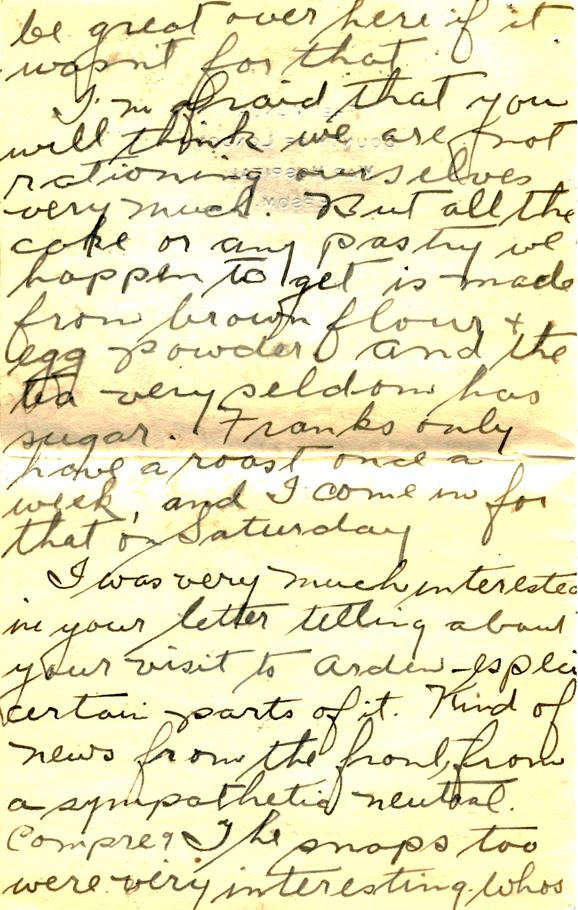 be great over here if it
wasn't for that.
I'm afraid that you
will think we are not
rationing ourselves
very much. But all the
cake or any pastry we
happen to get is made
from brown flour +
egg powder, and the
tea very seldom has
sugar. Franks only
have a roast once a
week, and I come in for
that on Saturday
I was very much interested
in your letter telling about
your visit to Arden - especi
certain parts of it. Kind of
news from the front, from
a sympathetic neutral.
Compre? The snaps too
were very interesting. Whos